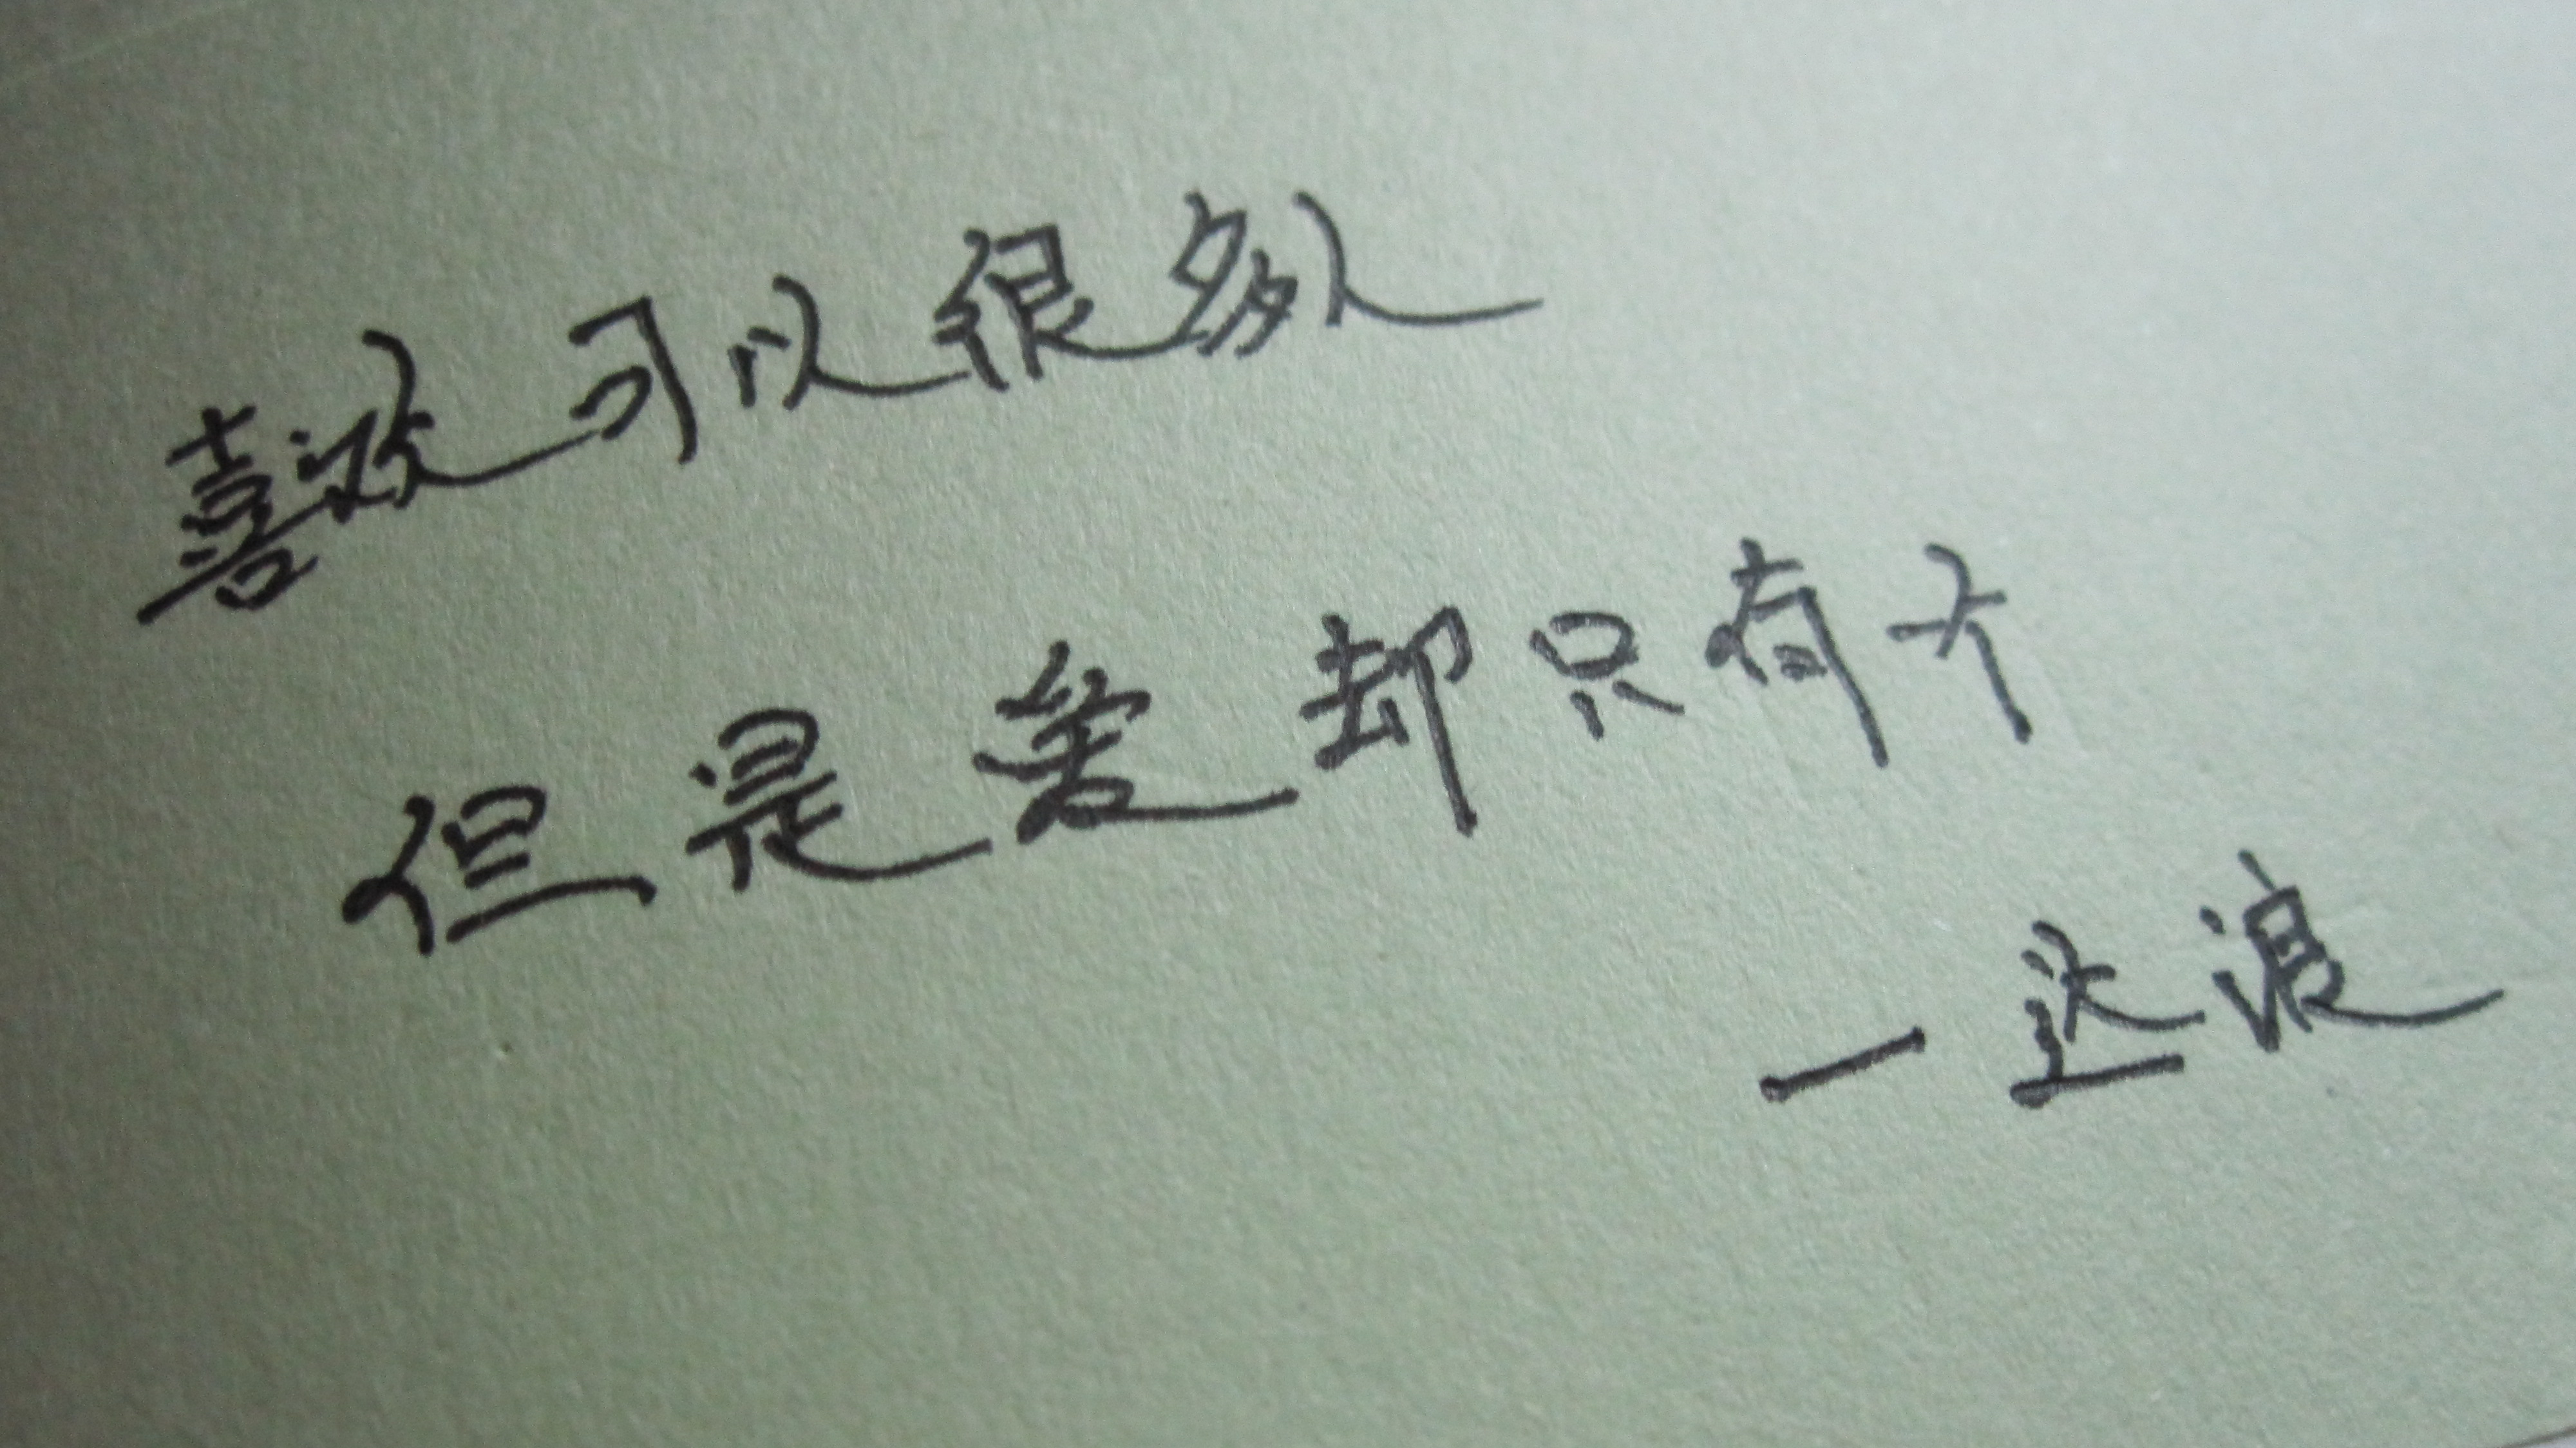 喜欢可以很多人
但是爱却只有个
一达浪